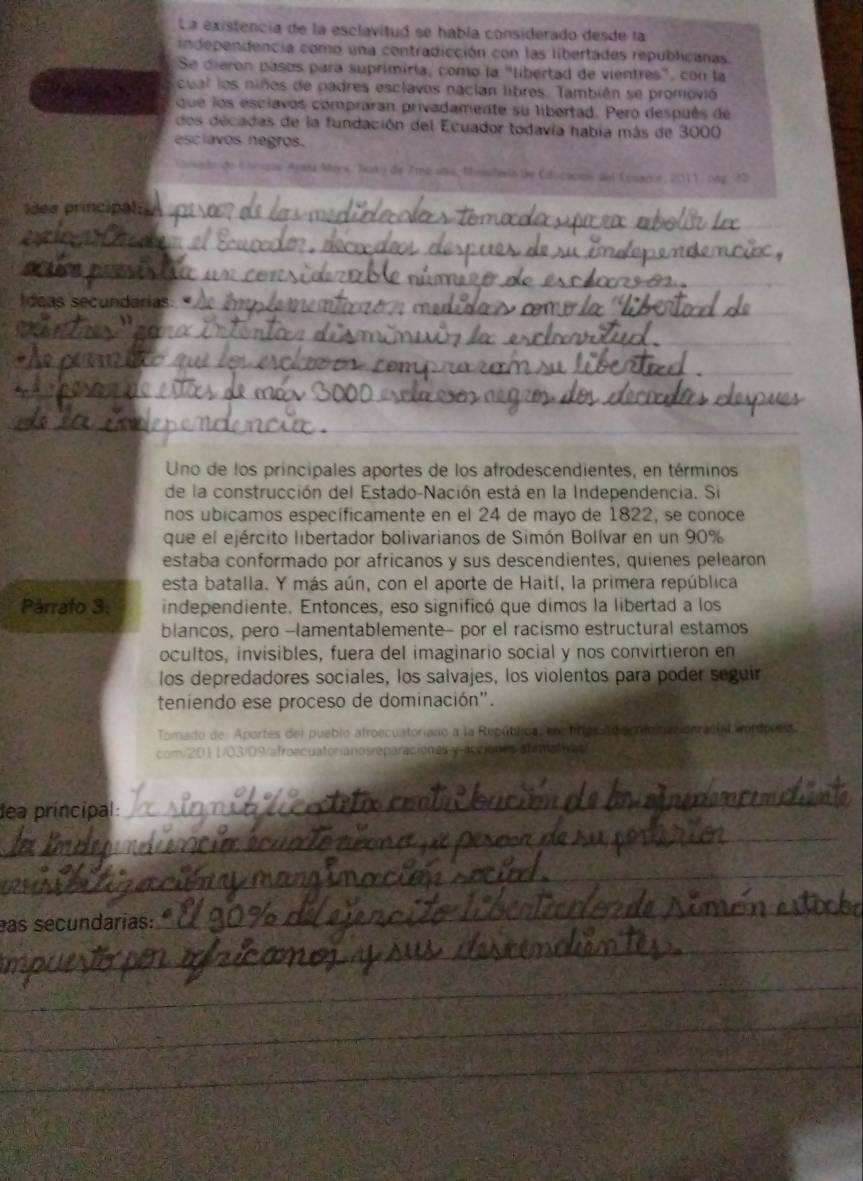 La existencia de la esclavitud se había considerado desde la
independencia como una contradicción con las libertades republicanas.
Se dieron pasos para suprimirla, como la "libertad de vientres", con la
cual los niños de padres esclavos nacían libres. También se promovió
que los esclavos compraran privadamente su libertad. Pero después de
dos décadas de la fundación del Ecuador todavía había más de 3000
esclavos negros.
Idea principal: A pesar de las medidas tomadas para abolir la
en el Ecuador, decadas despues de su independencia,
un considerable número de esclavos.
Ideas secundarias: • Se implementaron medidas como la "libertad de
vientres" para intentar disminuir la esclavitud.
• Se permitio que los esclavos compraran su libertad.
A pesar de estas de más 3000 esclavos negros dos decadas despues
de la independencia.
Uno de los principales aportes de los afrodescendientes, en términos
de la construcción del Estado-Nación está en la Independencia. Si
nos ubicamos específicamente en el 24 de mayo de 1822, se conoce
que el ejército libertador bolivarianos de Simón Bolívar en un 90%
estaba conformado por africanos y sus descendientes, quienes pelearon
Párrafo 3:
esta batalla. Y más aún, con el aporte de Haití, la primera república
independiente. Entonces, eso significó que dimos la libertad a los
blancos, pero –lamentablemente– por el racismo estructural estamos
ocultos, invisibles, fuera del imaginario social y nos convirtieron en
los depredadores sociales, los salvajes, los violentos para poder seguir
teniendo ese proceso de dominación".
Tomado de: Aportes del pueblo afroecuatoriano a la República, en:
com/2011/03/09/afroecuatorianosreparaciones-y-acciones-afirmativas/
dea principal: la contribución de los
la independencia ecuatoriana, a pesar de su posterior
y marginación social.
eas secundarias: • El 90% del ejercito libertador de simón estaba
mpuesto por africanos y sus descendientes.